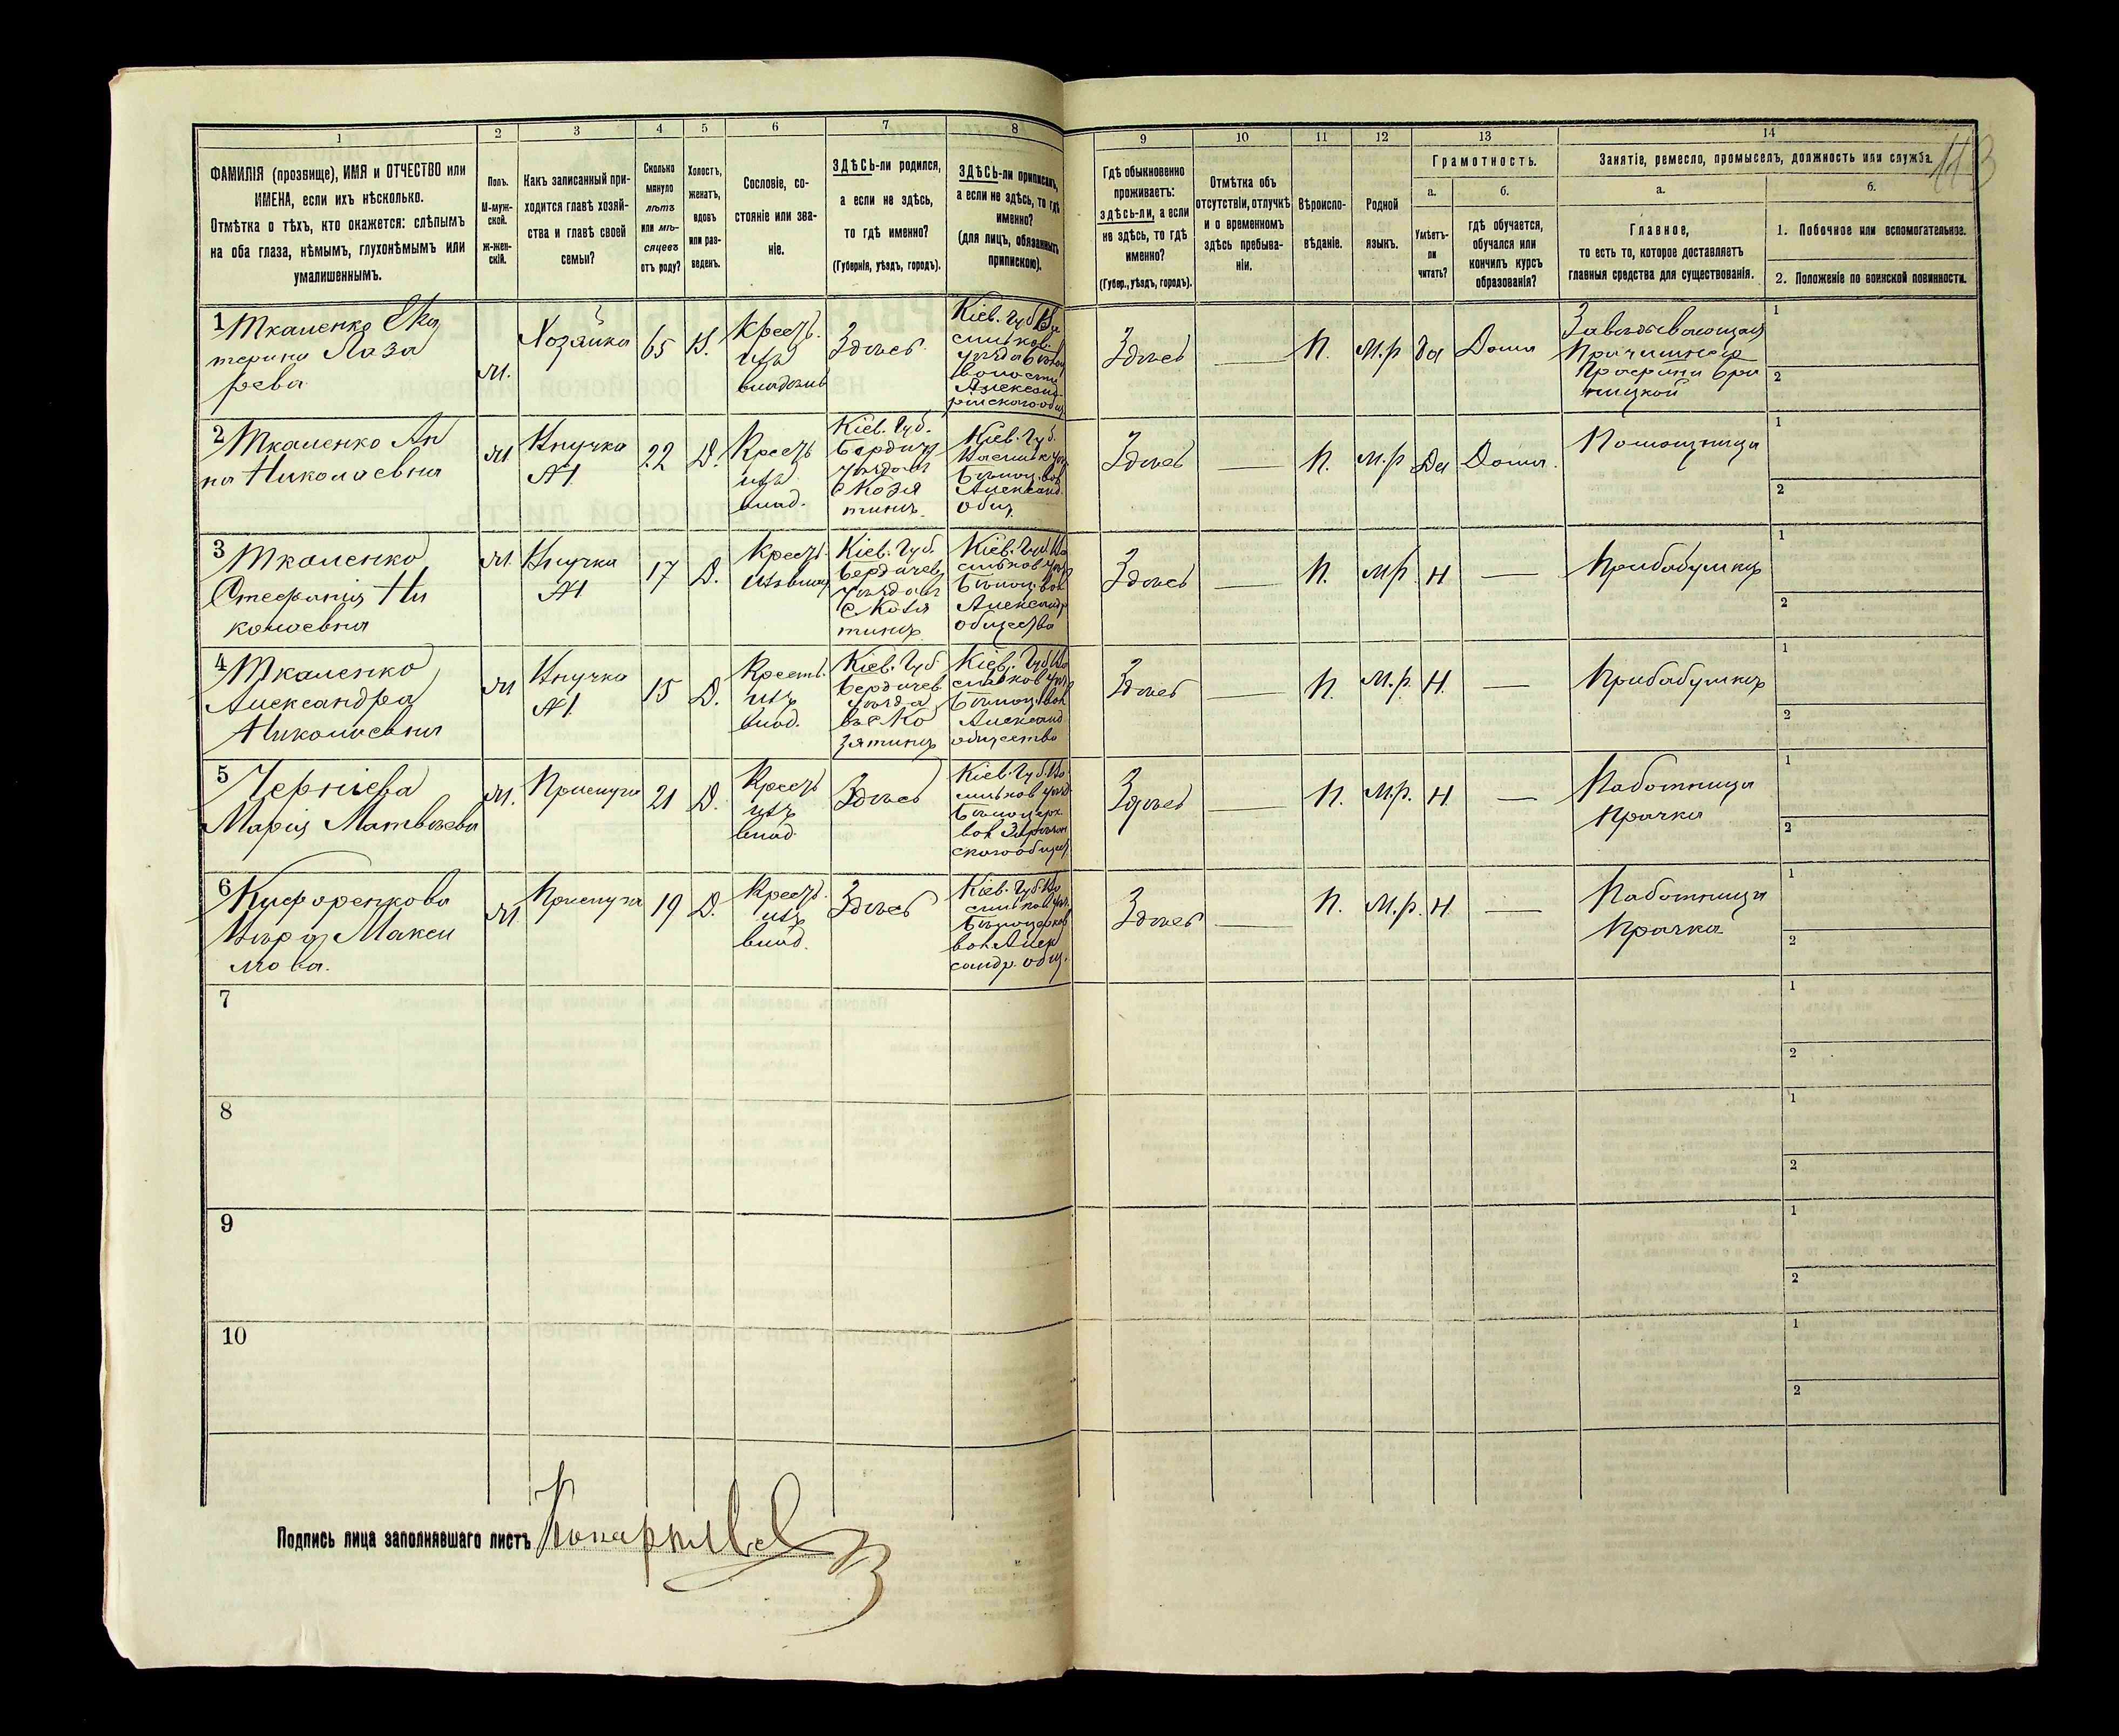 1
2
3
4
5
6
7
8
ФАМИЛІЯ (прозвище), ИМЯ и ОТЧЕСТВО или
ИМЕНА, если ихъ нѣсколько.
Отмѣтка о тѣхъ, кто окажется: слѣпымъ
на оба глаза, нѣмымъ, глухонѣмымъ или
умалишеннымъ.
Полъ.
М-муж-
ской.
ж-жен-
скій.
Какъ записанный при-
ходится главѣ хозяй-
ства и главѣ своей
семьи?
Сколько
минуло
лѣтъ
или мѣ-
сяцевъ
отъ роду?
Холостъ,
женатъ,
вдовъ
или раз-
веденъ.
Сословіе, со-
стояніе или зва-
ніе.
ЗДѢСЬ-ли родился,
а если не здѣсь,
то гдѣ именно?
(Губернія, уѣздъ, городъ).
ЗДѢСЬ-ли приписанъ,
а если не здѣсь, то гдѣ
именно?
(для лицъ, обязанныхъ
припискою).
9
10
11
12
13
14
113
Гдѣ обыкновенно
проживаетъ:
здѣсь-ли, а если
не здѣсь, то гдѣ
именно?
(Губер., уѣздъ, городъ).
Отмѣтка объ
отсутствіи, отлучкѣ
и о временномъ
здѣсь пребыва-
ніи.
Вѣроиспо-
вѣданіе.
Родной
языкъ.
Грамотность.
а.
Умѣетъ-
ли
читать?
б.
гдѣ обучается,
обучался или
кончилъ курсъ
образованія?
Занятіе, ремесло, промыселъ, должность или служба.
а.
Главное,
то есть то, которое доставляетъ
главныя средства для существованія.
б.
1. Побочное или вспомогательное.
2. Положеніе по воинской повинности.
1 Ткаленко Ека
терина Лаза
рева
М.
Хозяйка
65
В.
Крестъ.
изъ
владѣльч
Здѣсь
Кіев. Губ. Ва
сильков.
уѣзда Бѣлоц
волости
Александ-
рійского общ
Здѣсь
П.
М.р
да
Дома
Завѣдывающая
Прачишной
Графини Бра
ницкой
1
2
2 Ткаленко Ан
на Николаевна
М
Внучка
№1
22
Д.
Крестъ
изъ
влад.
Кіев. Губ.
Бердичев
уѣзда въ
с Козя
тинѣ
Кіев. Губ.
Васильк уѣз
Бѣлоц. вол
Александ.
общ.
Здѣсь
П.
М.р
Да
Дома.
Помощница
1
2
3 Ткаленко
Стефанія Ни
колаевна
М.
Внучка
№1
17
Д.
Крестъ.
изъ влад
Кіев. Губ.
Бердичев
уѣзда въ
с Козя
тинѣ
Кіев. Губ. Ва
сильков уѣз
Бѣлоц. вол
Александр
общества
Здѣсь
П.
М.р.
Н
Прибабушкѣ
1
2
4 Ткаленко
Александра
Николаевна
М
Внучка
№1.
15
Д.
Крест.
изъ
влад.
Кіев. Губ
Бердичев
уѣзда
въ с Ко
зятинѣ
Кіев. Губ Ва
сильков уѣз
Бѣлоц. вол
Александ
общества
Здѣсь
П.
М.р.
Н.
Прибабушкѣ
1
2
5 Чернiева
Марія Матвѣева
М.
Прислуга
21
Д.
Крестъ
изъ
влад
Здѣсь
Кіев. Губ. Ва
сильков уѣзд
Бѣлоцерк
вол
ского общест
Здѣсь
П.
М.р.
Н.
Работница
Прачка
1
2
6 Кифоренкова
Вѣра Макси
мова.
М
Прислуга
19
Д.
Крестъ.
изъ
влад.
Здѣсь
Кіев. Губ. Ва
сильков уѣз.
Бѣлоцерков
вол Алек
сандр. общ.
Здѣсь
П.
М.р.
Н.
Работница
Прачка
1
2
7
1
2
8
1
2
9
1
2
10
1
2
Подпись лица заполнявшаго листъ